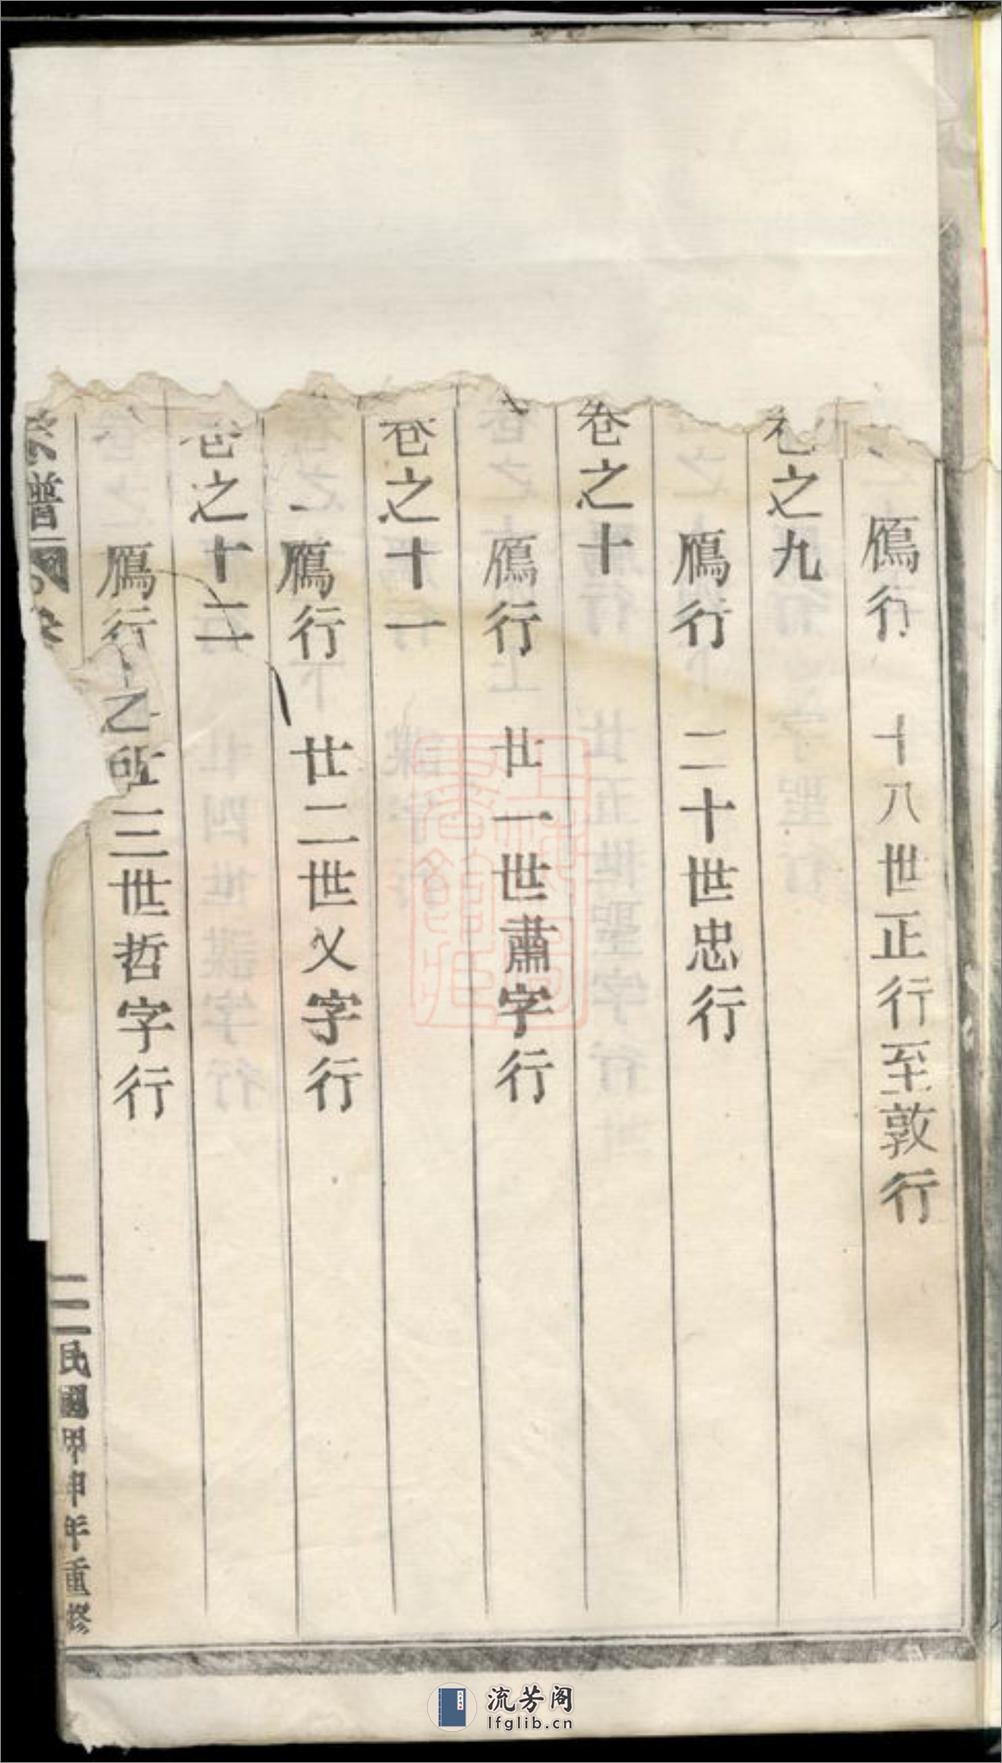 鴈行 十八世正行至敦行
卷之九
鴈行 二十世忠行
卷之十
鴈行 廿一世肅字行
卷之十一
鴈行 廿二世乂字行
卷之十二
鴈行 廿三世哲字行
宗譜
二 民國甲申年重修
流芳阁
lfglib.cn